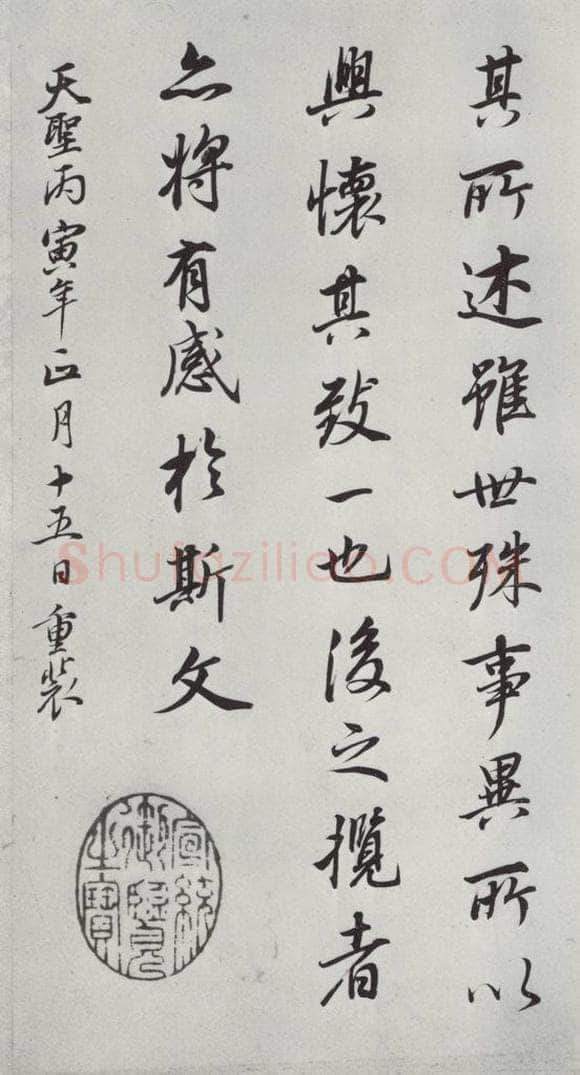 其所述雖世殊事異所以
興懷其致一也後之攬者
亦將有感於斯文
天聖丙寅年正月十五日重裝
宣統御覽之寶
Shufaziliao.COM